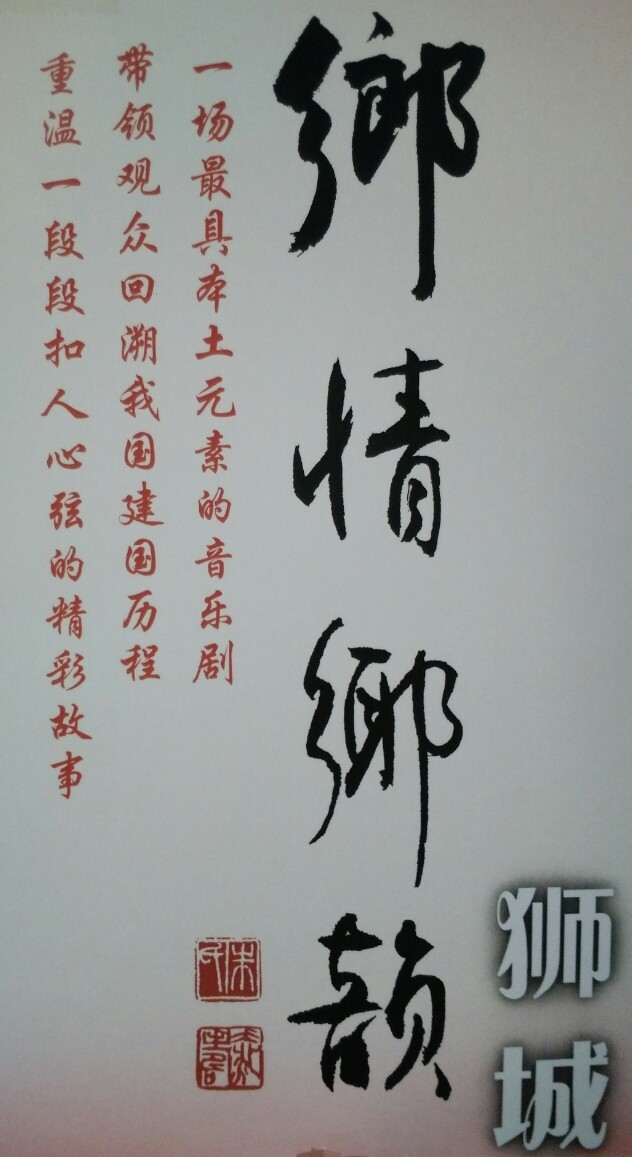 狮城
鄉情鄉韻
一场最具本土元素的音乐剧
带领观众回溯我国建国历程
重温一段段扣人心弦的精彩故事